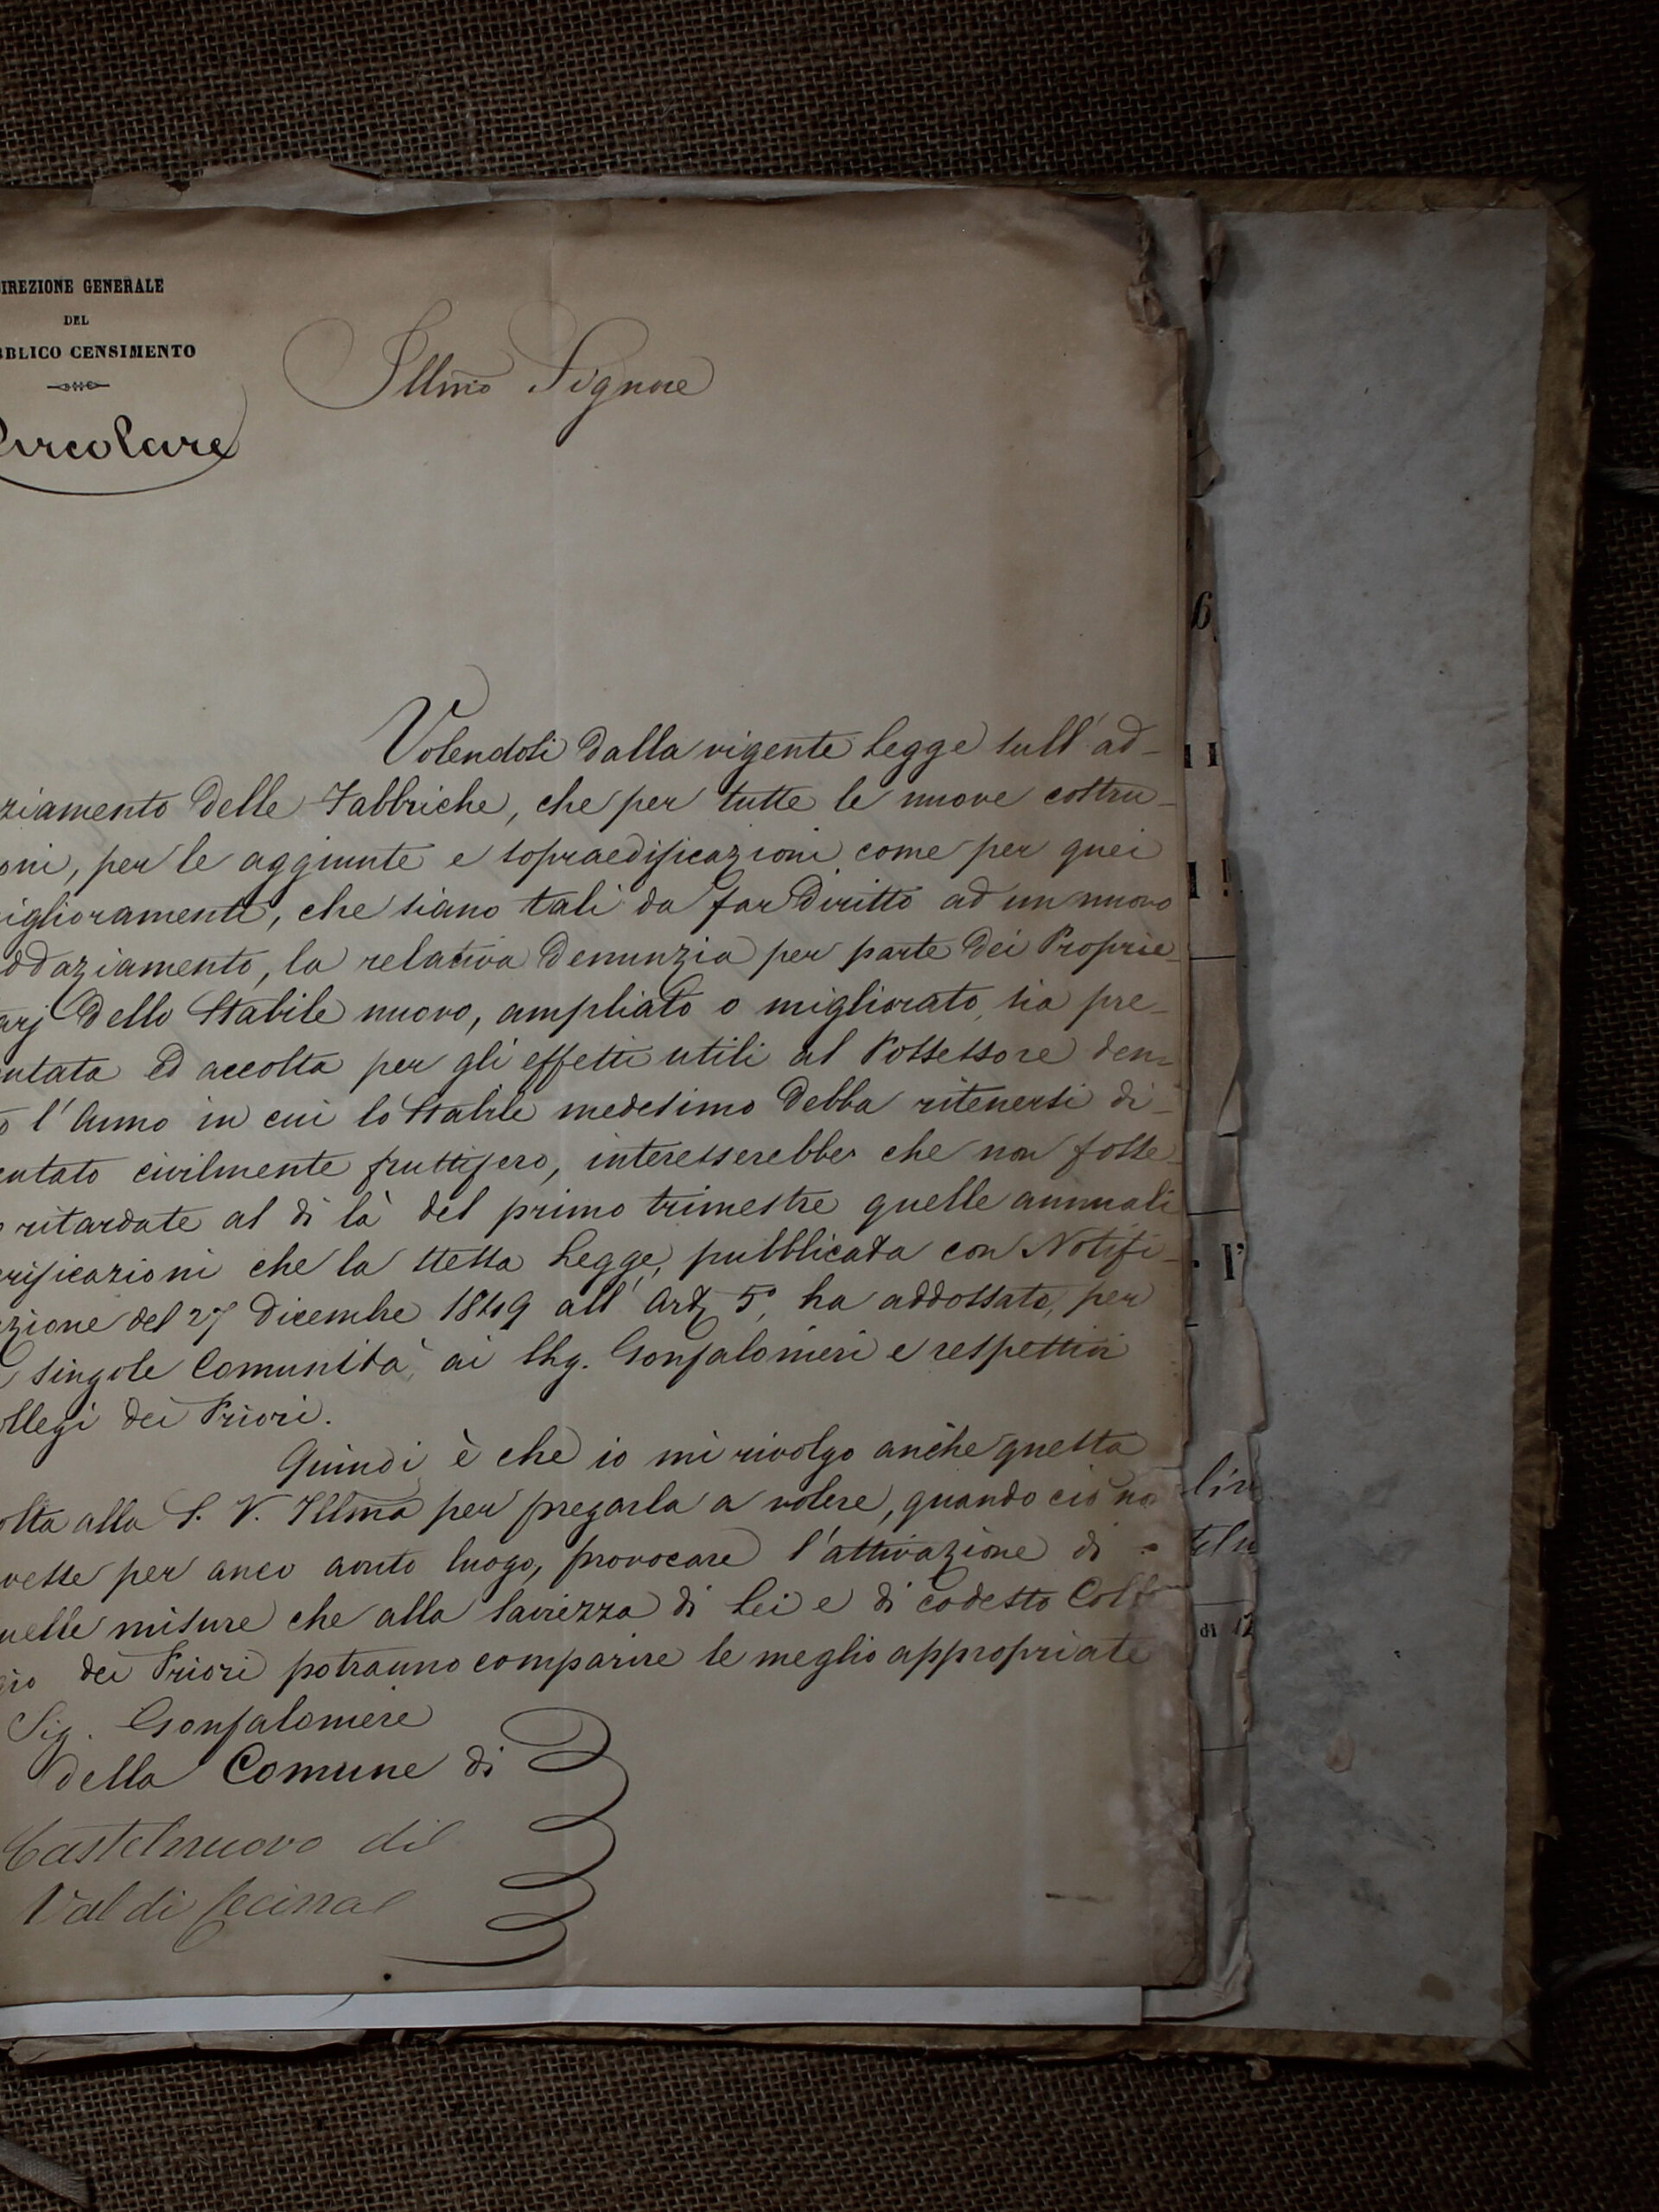 IREZIONE GENERALE
DEL
BBLICO CENSIMENTO
ircolare
Illmo Signore
Volendosi dalla vigente Legge sull'ad-
ziamento delle Fabbriche, che per tutte le nuove costru-
oni, per le aggiunte e sopraedificazioni come per quei
iglioramenti, che siano tali da far diritto ad un nuovo
ddaziamento, la relativa denunzia per parte dei Proprie-
arj dello Stabile nuovo, ampliato o migliorato, sia pre-
ntata ed accolta per gli effetti utili al Possessore den-
o l'Anno in cui lo Stabile medesimo debba ritenersi di-
entato civilmente fruttifero, interesserebbe che non fosse-
o ritardate al di là del primo trimestre quelle annuali
rificazioni che la stessa Legge, pubblicata con Notifi-
zione del 27 Dicembre 1849 all'Art. 5°, ha addossate, per
singole Comunità, ai Sigg. Gonfalonieri e respettivi
ollegi dei Priori.
Quindi è che io mi rivolgo anche questa
olta alla S. V. Illma per pregarla a volere, quando ciò no
vesse per anco avuto luogo, provocare l'attivazione di
uelle misure che alla saviezza di Lei e di codesto Colle
gio dei Priori potranno comparire le meglio appropriate
Sig. Gonfaloniere
della Comune di
Castelnuovo di
Val di Cecina
6
11
1!
1'
lir
di 12